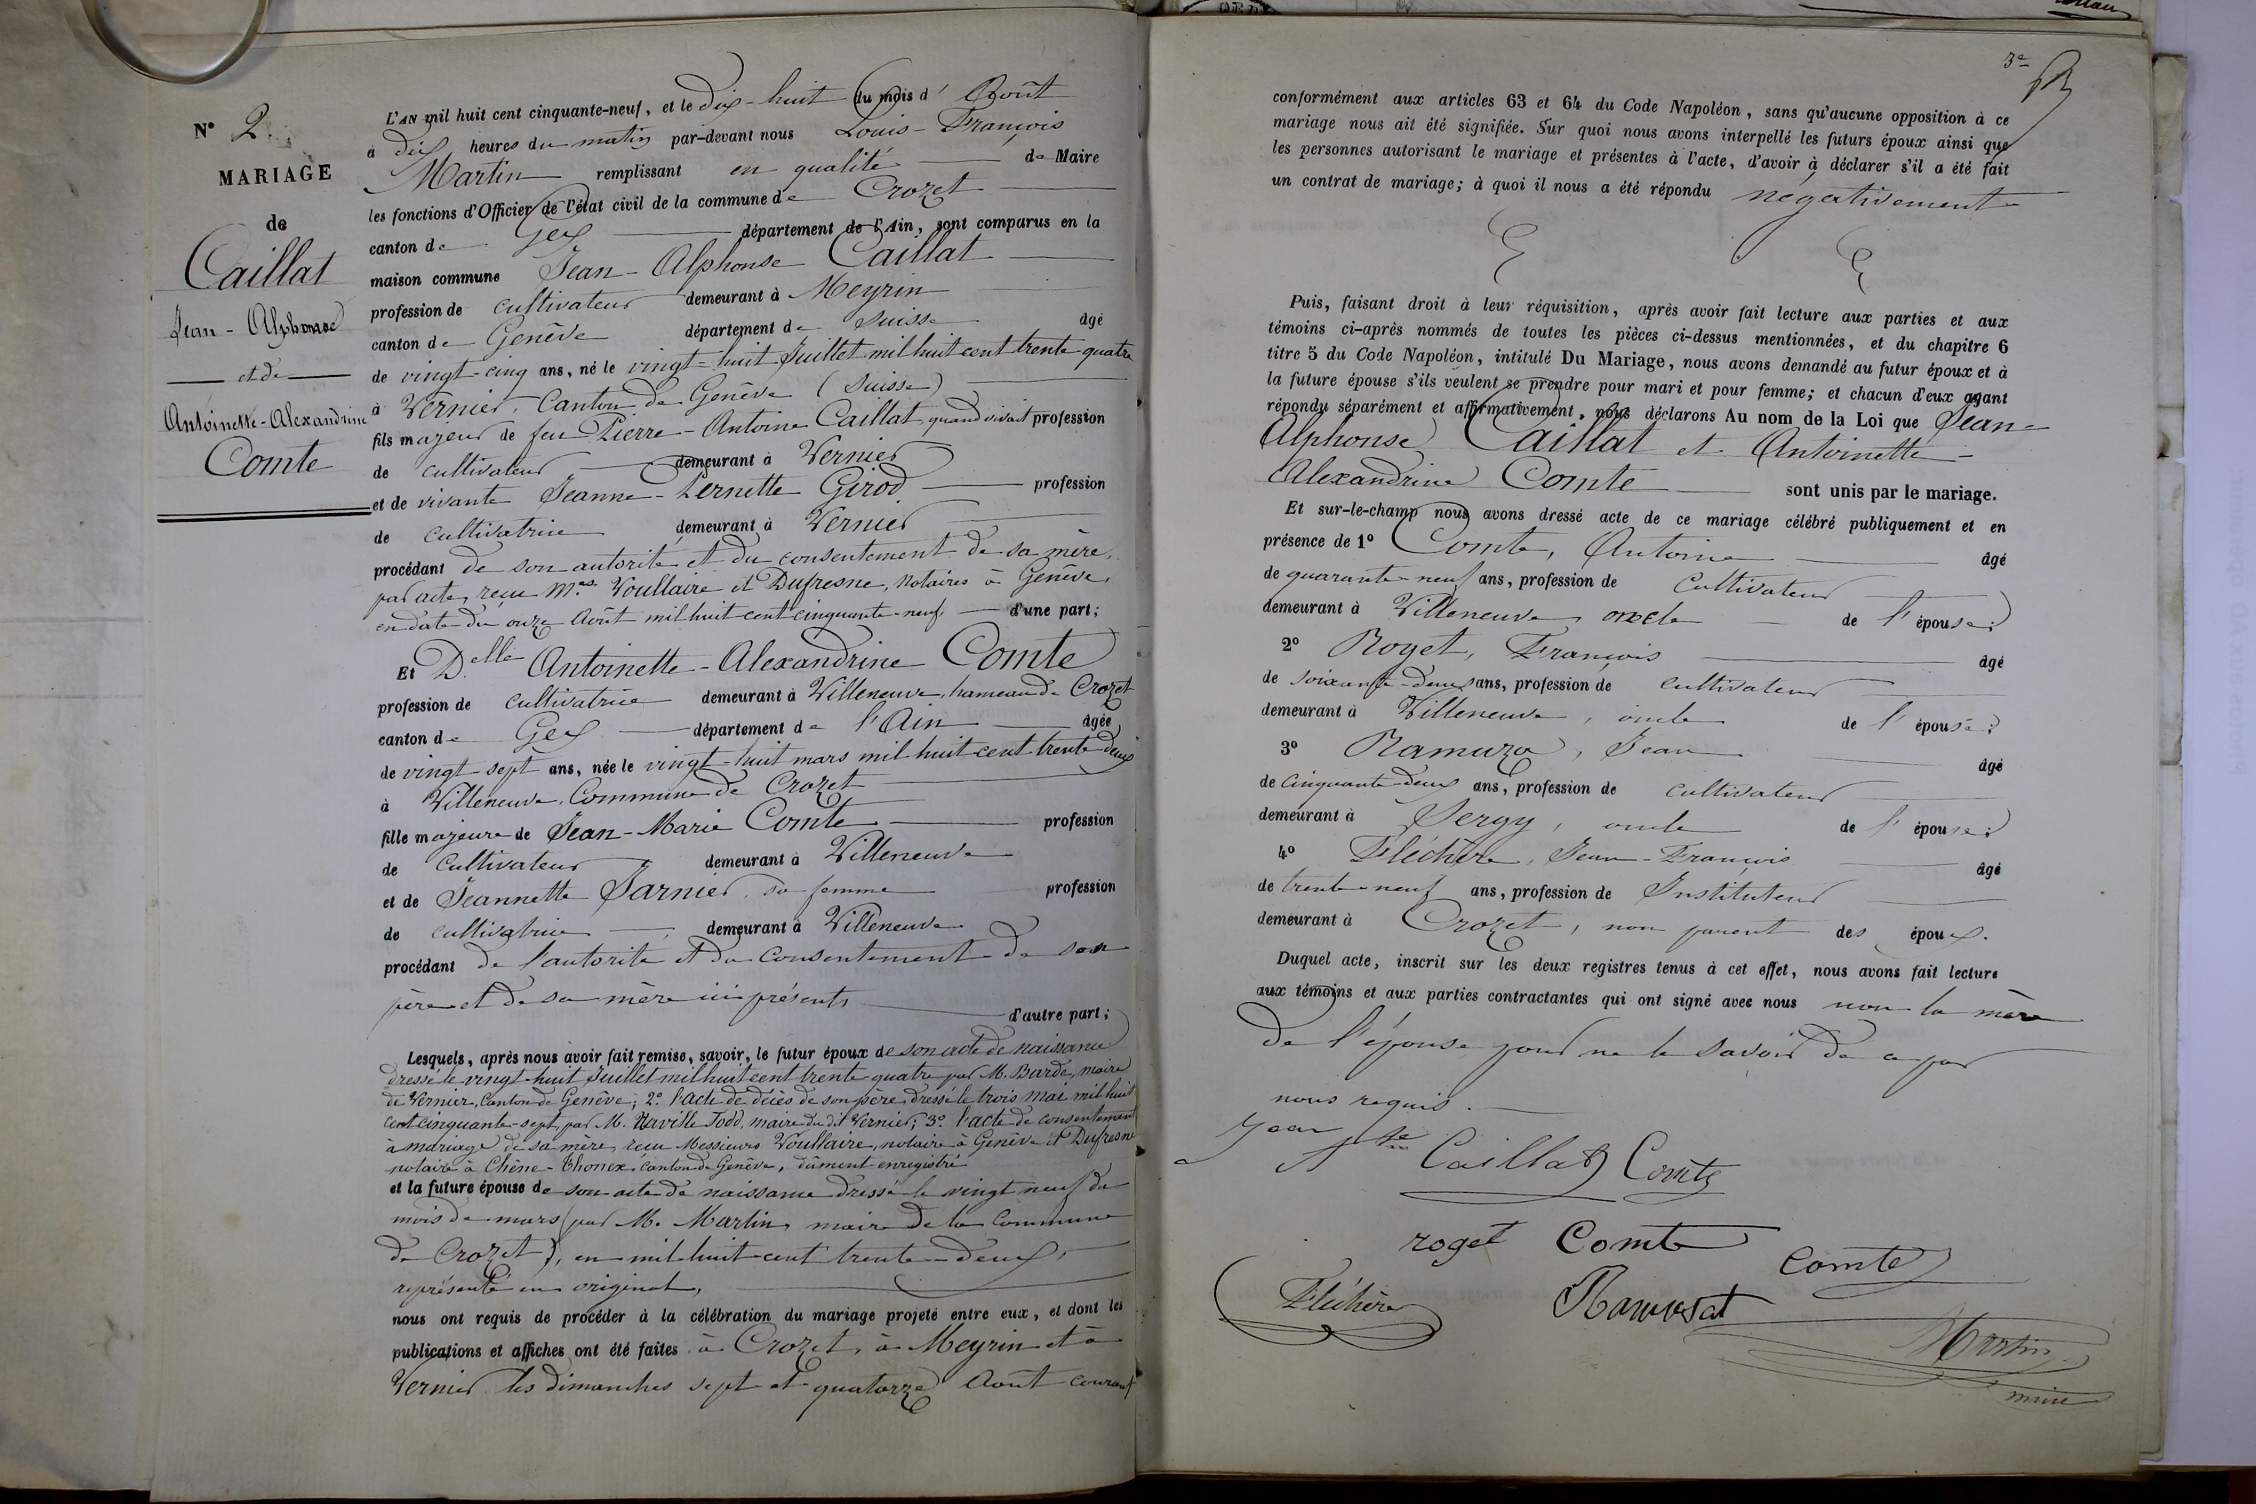 N° 2
MARIAGE
de
Caillat
Jean-Alphonse
et de
Antoinette-Alexandrine
Comte
L'AN mil huit cent cinquante-neuf, et le dix-huit du mois d'Août
à dix heures du matin par-devant nous Louis-François
Martin remplissant en qualité de Maire
les fonctions d'Officier de l'état civil de la commune de Crozet
canton de Gex département de l'Ain, sont comparus en la
maison commune Jean-Alphonse Caillat
profession de cultivateur demeurant à Meyrin
canton de Genève département de Suisse âgé
de vingt-cinq ans, né le vingt-huit Juillet mil huit cent trente quatre
à Vernier, Canton de Genève (Suisse)
fils majeur de feu Pierre-Antoine Caillat quand vivait profession
de cultivateur demeurant à Vernier
et de vivante Jeanne-Pernette Girod profession
de cultivatrice demeurant à Vernier
procédant de son autorité et du consentement de sa mère,
par acte, reçu Mes. Voullaire et Dufresne, notaires à Genève,
en date du onze Août mil huit cent cinquante-neuf d'une part;
Et Delle Antoinette-Alexandrine Comte
profession de cultivatrice demeurant à Villeneuve, hameau de Crozet
canton de Gex département de l'Ain âgée
de vingt-sept ans, née le vingt-huit mars mil huit cent trente deux
à Villeneuve, Commune de Crozet
fille majeure de Jean-Marie Comte profession
de cultivateur demeurant à Villeneuve
et de Jeannette Jarnier sa femme profession
de cultivatrice demeurant à Villeneuve
procédant de l'autorité et du consentement de son
père et de sa mère ici présents d'autre part;
Lesquels, après nous avoir fait remise, savoir, le futur époux de son acte de naissance
dressé le vingt-huit Juillet mil huit cent trente quatre par M. Barde, maire
de Vernier, Canton de Genève; 2° l'acte de décès de son père dressé le trois mai mil huit
cent cinquante-sept, par M. Naville Todd, maire du dit Vernier; 3° l'acte de consentement
à mariage de sa mère, reçu Messieurs Voullaire, notaire à Genève et Dufresne
notaire à Chêne-Thonex, canton de Genève, dûment enregistré
et la future épouse de son acte de naissance dressé le vingt neuf du
mois de mars (par M. Martin, maire de la Commune
de Crozet), en mil huit cent trente-deux,
représenté en original,
nous ont requis de procéder à la célébration du mariage projeté entre eux, et dont les
publications et affiches ont été faites à Crozet, à Meyrin et à
Vernier les dimanches sept et quatorze Août courant
3e
conformément aux articles 63 et 64 du Code Napoléon, sans qu'aucune opposition à ce
mariage nous ait été signifiée. Sur quoi nous avons interpellé les futurs époux ainsi que
les personnes autorisant le mariage et présentes à l'acte, d'avoir à déclarer s'il a été fait
un contrat de mariage; à quoi il nous a été répondu négativement
Puis, faisant droit à leur réquisition, après avoir fait lecture aux parties et aux
témoins ci-après nommés de toutes les pièces ci-dessus mentionnées, et du chapitre 6
titre 5 du Code Napoléon, intitulé Du Mariage, nous avons demandé au futur époux et à
la future épouse s'ils veulent se prendre pour mari et pour femme; et chacun d'eux ayant
répondu séparément et affirmativement, nous déclarons Au nom de la Loi que Jean-
Alphonse Caillat et Antoinette-
Alexandrine Comte sont unis par le mariage.
Et sur-le-champ nous avons dressé acte de ce mariage célébré publiquement et en
présence de 1° Comte, Antoine âgé
de quarante-neuf ans, profession de Cultivateur
demeurant à Villeneuve, oncle de l'épouse;
2° Roget, François âgé
de soixante-deux ans, profession de cultivateur
demeurant à Villeneuve, oncle de l'épouse;
3° Ramuza, Jean âgé
de cinquante-deux ans, profession de cultivateur
demeurant à Sergy, oncle de l'épouse;
4° Fléchère, Jean-François âgé
de trente-neuf ans, profession de Instituteur
demeurant à Crozet, non parent des époux.
Duquel acte, inscrit sur les deux registres tenus à cet effet, nous avons fait lecture
aux témoins et aux parties contractantes qui ont signé avec nous non la mère
de l'épouse pour ne le savoir de ce par
nous requis.
Jean
Caillat Comte
roget Comte
Comte
Fléchère
Martin
maire